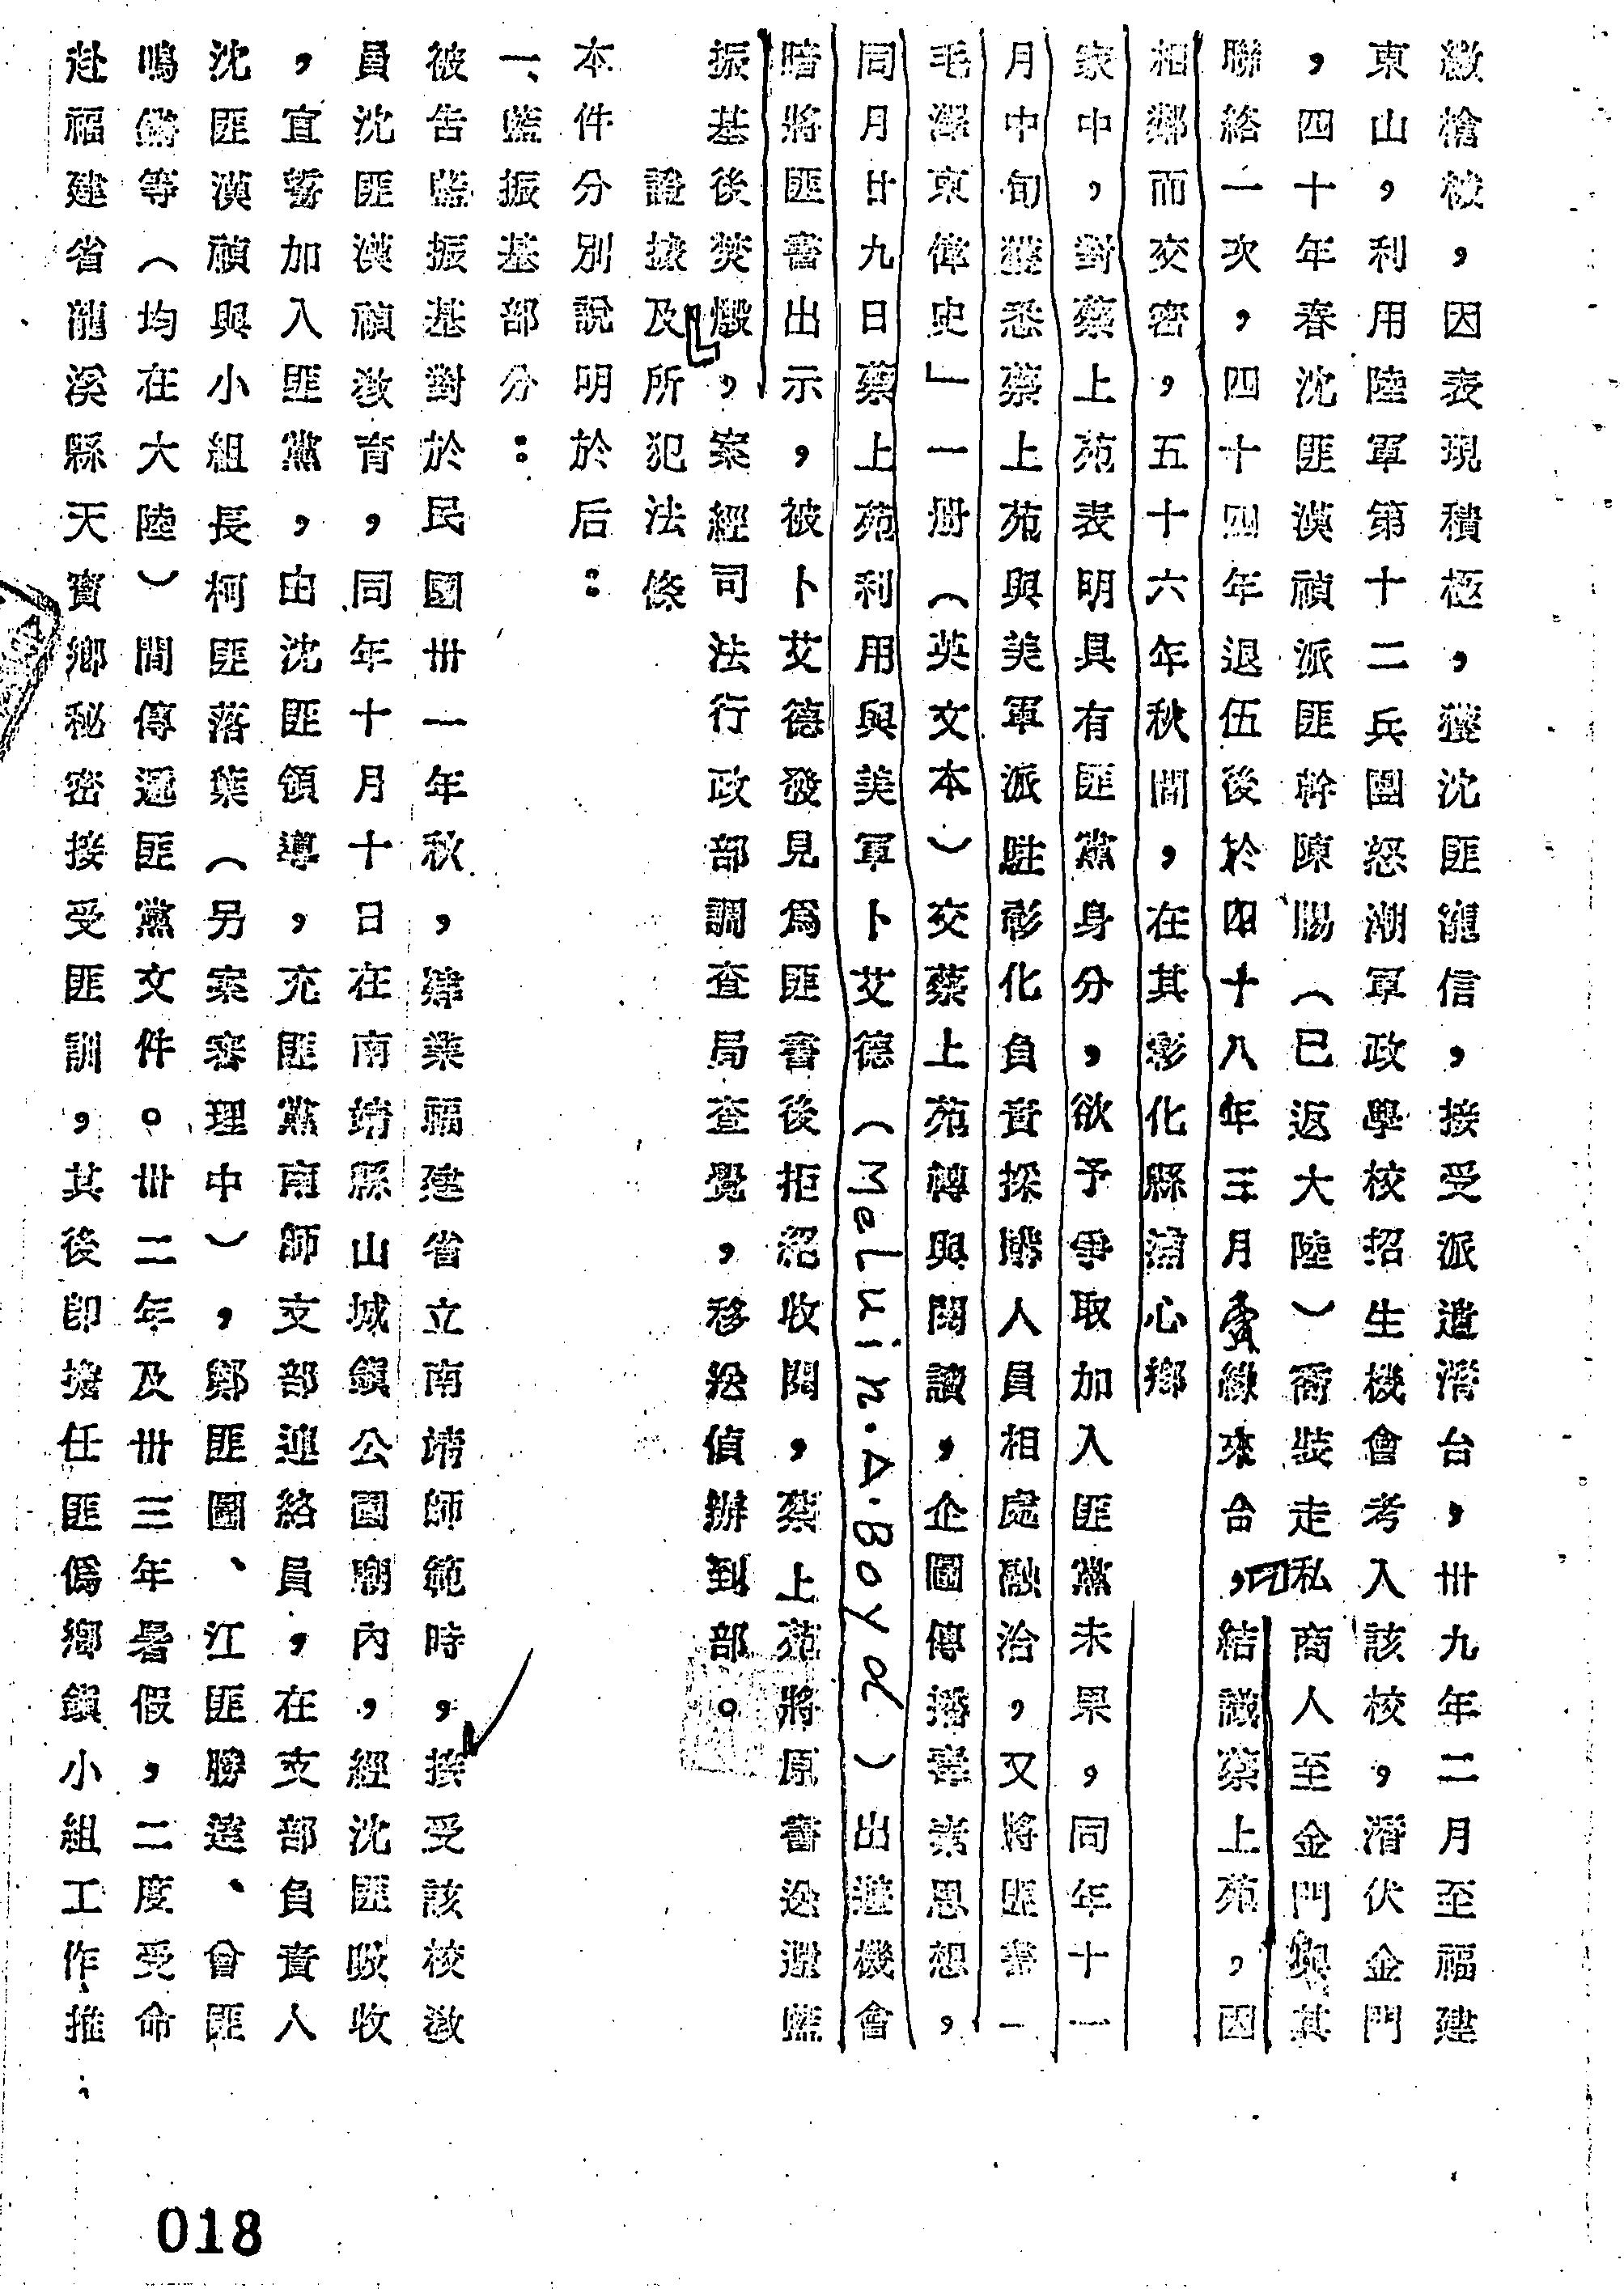 繳槍械，因表現積極，獲沈匪寵信，接受派遣潛台，卅九年二月至福建
東山，利用陸軍第十二兵團怒潮軍政學校招生機會考入該校，潛伏金門
，四十年春沈匪漢禎派匪幹陳賜（已返大陸）喬裝走私商人至金門與其
聯絡一次，四十四年退伍後於四十八年三月來台，結識蔡上苑，因
相鄰而交密，五十六年秋間，在其彰化縣浦心鄉
家中，對蔡上苑表明具有匪黨身分，欲予爭取加入匪黨未果，同年十一
月中旬獲悉蔡上苑與美軍派駐彰化負責採購人員相處融洽，又將匪書「
毛澤東偉史」一册（英文本）交蔡上苑轉與閱讀，企圖傳播毒素思想，
同月廿九日蔡上苑利用與美軍卜艾德（Meluin.A.Boyd）出遊機會
暗將匪書出示，被卜艾德發見爲匪書後拒絕收閱，蔡上苑將原書送還藍
振基後焚燬，案經司法行政部調查局查覺，移送偵辦到部。
證據及所犯法條
本件分別說明於后：
一、藍振基部分：
被告藍振基對於民國卅一年秋，肄業福建省立南靖師範時，接受該校教
員沈匪漢禎教育，同年十月十日在南靖縣山城鎮公園廟內，經沈匪吸收
，宣誓加入匪黨，由沈匪領導，充匪黨南師支部連絡員，在支部負責人
沈匪漢禎與小組長柯匪落葉（另案審理中），鄭匪圖、江匪勝達、曾匪
鳴鏘等（均在大陸）間傳遞匪黨文件。卅二年及卅三年暑假，二度受命
赴福建省龍溪縣天寶鄉秘密接受匪訓，其後卽擔任匪僞鄉鎮小組工作推
018